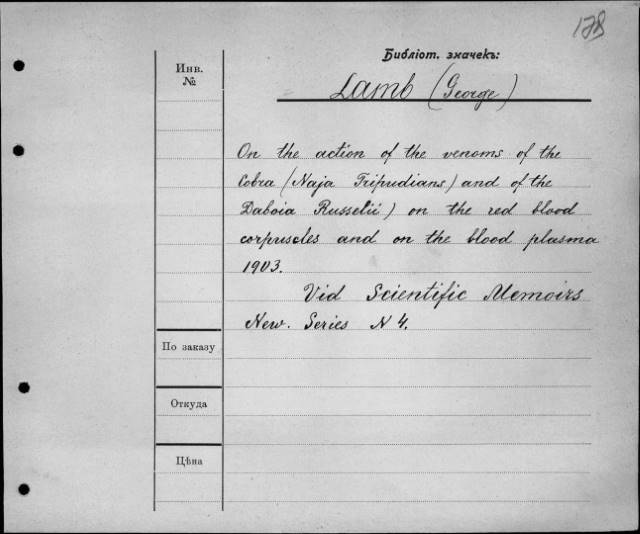 178
Библіот. значекъ:
Инв.
№
Lamb (George)
On the action of the venoms of the
Cobra (Naja Tripudians) and of the
Daboia Russelii) on the red blood
corpuscles and on the blood plasma
1903.
Vid Scientific Memoirs
New. Series N 4.
По заказу
Откуда
Цѣна